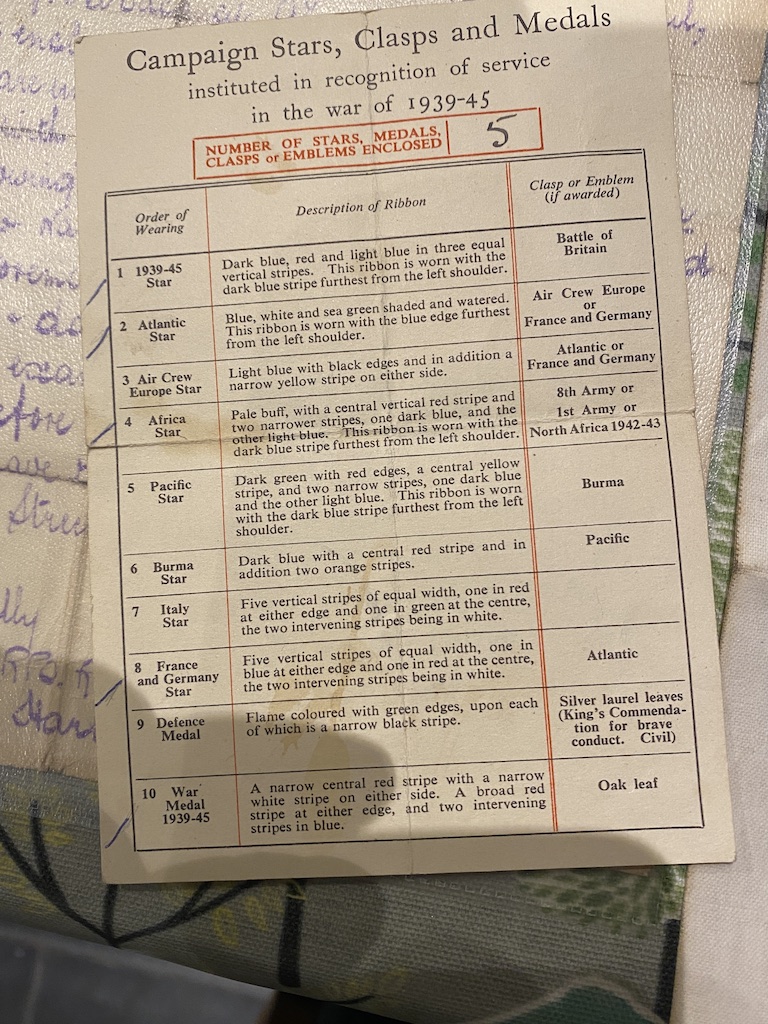 Campaign Stars, Clasps and Medals
instituted in recognition of service
in the war of 1939-45
NUMBER OF STARS, MEDALS,
CLASPS or EMBLEMS ENCLOSED
5
Order of
Wearing
Description of Ribbon
Clasp or Emblem
(if awarded)
1 1939-45
Star
Dark blue, red and light blue in three equal
vertical stripes. This ribbon is worn with the
dark blue stripe furthest from the left shoulder.
Battle of
Britain
2 Atlantic
Star
Blue, white and sea green shaded and watered.
This ribbon is worn with the blue edge furthest
from the left shoulder.
Air Crew Europe
or
France and Germany
3 Air Crew
Europe Star
Light blue with black edges and in addition a
narrow yellow stripe on either side.
Atlantic or
France and Germany
4 Africa
Star
Pale buff, with a central vertical red stripe and
two narrower stripes, one dark blue, and the
other light blue. This ribbon is worn with the
dark blue stripe furthest from the left shoulder.
8th Army or
1st Army or
North Africa 1942-43
5 Pacific
Star
Dark green with red edges, a central yellow
stripe, and two narrow stripes, one dark blue
and the other light blue. This ribbon is worn
with the dark blue stripe furthest from the left
shoulder.
Burma
6 Burma
Star
Dark blue with a central red stripe and in
addition two orange stripes.
Pacific
7 Italy
Star
Five vertical stripes of equal width, one in red
at either edge and one in green at the centre,
the two intervening stripes being in white.
8 France
and Germany
Star
Five vertical stripes of equal width, one in
blue at either edge and one in red at the centre,
the two intervening stripes being in white.
Atlantic
9 Defence
Medal
Flame coloured with green edges, upon each
of which is a narrow black stripe.
Silver laurel leaves
(King's Commenda-
tion for brave
conduct. Civil)
10 War
Medal
1939-45
A narrow central red stripe with a narrow
white stripe on either side. A broad red
stripe at either edge, and two intervening
stripes in blue.
Oak leaf